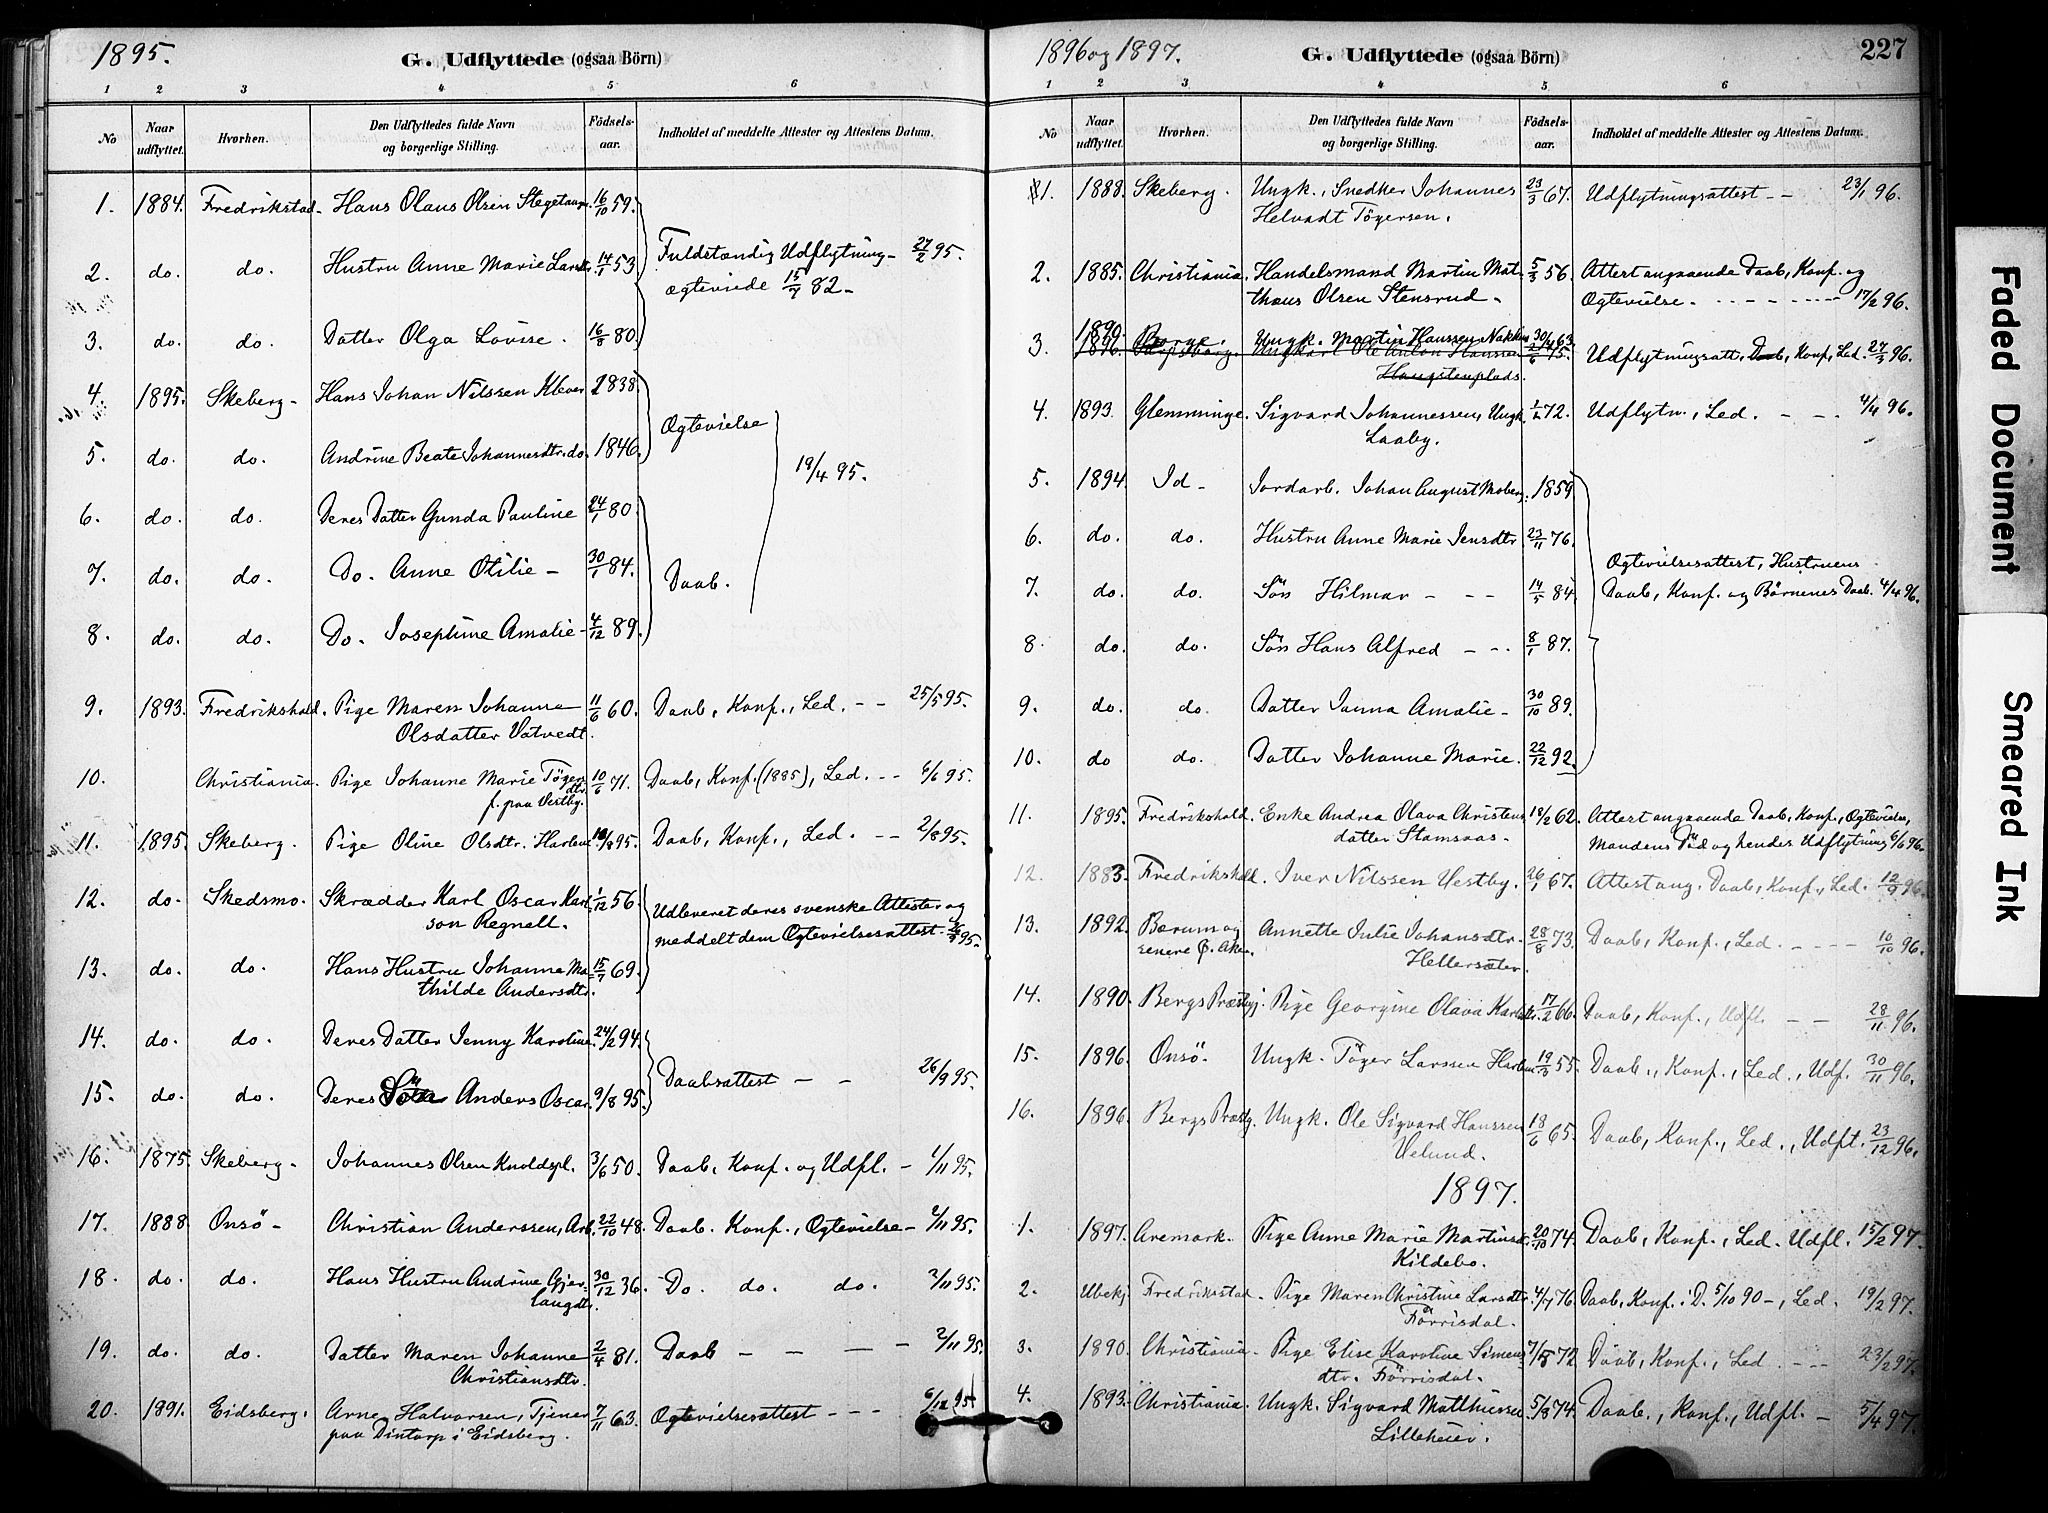 1895.
G. Udflyttede (ogsaa Börn)
1 2 3 4 5 6
No Naar udflyttet. Hvorhen. Den Udflyttedes fulde Navn og borgerlige Stilling. Födsels-aar. Indholdet af meddelte Attester og Attestens Datum.
1. 1884. Fredrikstad. Hans Olaus Olsen 16/10 59.
2. do. do. Hustru Anne Marie Larsdtr. 14/1 53 Fuldstændig Udflytning- 27/2 95.
ægteviede 15/7 82-
3. do. do. Datter Olga Lovise. 16/8 80
4. 1895. Skeberg- Hans Johan Nilssen Klever 1838.
Ogtevielse
5. do. do. Andrine Beate Johannesdtr. do. 1846.
19/4 95.
6. do. do. Deres Datter Gunda Pauline 24/1 80
7. do. do. Do. Anne Otilie- 30/1 84. Daab.
8. do. do. Do. Josephine Amalie- 4/12 89.
9. 1893. Fredrikshald. Pige Maren Johanne 11/6 60. Daab, Konf., Led. -- 25/5 95.
Olsdatter Vatvedt.
10. Christiania. Pige Johanne Marie Töger 10/6 71. Daab, Konf. (1885), Led. -- 6/6 95.
dtr.
f. paa Vestby.
11. 1895. Skeberg. Pige Oline Olsdtr. 95. Daab, Konf., Led. -- 2/8 95.
12. do. Skedsmo. Skrædder Karl Oscar Karl 1/12 56. Udleveret deres svenske Attester og
son Regnell. meddelt dem Ogtevielsesattest. 95.
13. do. do. Hans Hustru Johanne Ma= 15/7 69.
thilde Andersdtr.
14. do. do. Deres Datter Jenny Karoline 24/2 94.
Daabsattest - - 26/9 95.
15. do. do. Deres Sön Anders Oscar. 9/8 95.
16. 1875. Skeberg- Johannes Olsen 3/6 50. Daab, Konf. og Udfl. - 1/11 95.
17. 1888. Onsö- Christian Anderssen, Arb. 22/10 48. Daab. Konf., Ogtevielse- 2/11 95.
18. do. do. Hans Hustru Andrine Gjer- 30/12 36. Do. do. do. 2/11 95.
laugdtr.
19. do. do. Datter Maren Johanne 2/4 81. Daab - - - - 2/11 95.
Christiansdtr.
20. 1891. Eidsberg. Arne Halvorsen, Tjener 7/11 63. Ogtevielsesattest - - - 6/12 95
paa Dintorp i Eidsberg.
1896 og 1897.
G. Udflyttede (ogsaa Börn)
227
1 2 3 4 5 6
No Naar udflyttet. Hvorhen. Den Udflyttedes fulde Navn og borgerlige Stilling. Födsels-aar. Indholdet af meddelte Attester og Attestens Datum.
1. 1888. Skeberg. Ungk., Snedker Johannes 23/3 67. Udflytningsattest -- 23/1 96.
Helvadt Tögersen.
2. 1885. Christiania. Handelsmand Martin Mat- 5/3 56. Attest angaaende Daab, Konf. og
thæus Olsen Stensrud. Ogtevielse. - - - - 17/2 96.
1890. Borge. Ungk. Martin Hanssen 30/4 63.
3. 1896. Ungkarl Ole Anton Hanssen 75. Udflytningsatt. Daab, Konf., Led. 27/3 96.
Haugstenplads.
4. 1893. Glemminge. Sigvard Johannessen, Ungk. 72. Udflytn., Led. - - - 4/4 96.
Laaby.
5. 1894. Id- Jordarb. Johan August Moberg. 1859
6. do. do. Hustru Anne Marie Jensdtr. 23/11 76.
Ogtevielsesattest, Hustruens
7. do. do. Sön Hilmar - - - 14/5 84. Daab, Konf. og Börnenes Daab. 4/4 96.
8. do. do. Sön Hans Alfred - - - 8/1 87.
9. do. do. Datter Janna Amalie- 30/10 89.
10. do do. Datter Johanne Marie. 22/12 92.
11. 1895. Fredrikshald. Enke Andrea Olava Christens 19/2 62. Attest angaaende Daab, Konf., Ogtevielse,
datter Stamsaas. Mandens Död og hendes Udflytning 6/6 96.
12. 1883. Fredrikshald. Iver Nilssen Vestby. 26/1 67. Attest ang. Daab, Konf., Led. 12/9 96.
13. 1892. Bærum og Annette Julie Johansdtr. 28/8 73. Daab, Konf., Led. - - - - 10/10 96.
senere Ö. Aker. Hellersæter.
14. 1890. Bergs Præstgj. Pige Georgine Olava Karlsdtr. 17/2 66. Daab, Konf., Udfl. - - 28/11 96.
15. 1896. Onsö. Ungk. Töger Larssen 19/3 55. Daab., Konf., Led., Udf. 30/11 96.
16. 1896. Bergs Præstg. Ungk. Ole Sigvard Hanssen 18/6 65. Daab, Konf., Led., Udfl. 23/12 96.
Velund.
1897.
1. 1897. Aremark. Pige Anne Marie Martinsd. 20/10 74. Daab, Konf., Led. Udfl. 15/2 97.
Kildebo.
2. Ubekj. Fredrikstad- Pige Maren Christine Larsdtr. 4/7 76. Daab, Konf. i D. 5/10 90-, Led. 19/2 97.
Förrisdal.
3. 1890. Christiania- Pige Elise Karoline Simens 72 Daab, Konf., Led. - - - 23/2 97.
dtr. Förrisdal.
4. 1893. Christiania. Ungk. Sigvard Matthiessen 5/8 74. Daab., Konf., Udfl. - 5/4 97.
Lilleheier.
Faded Document
Smeared Ink